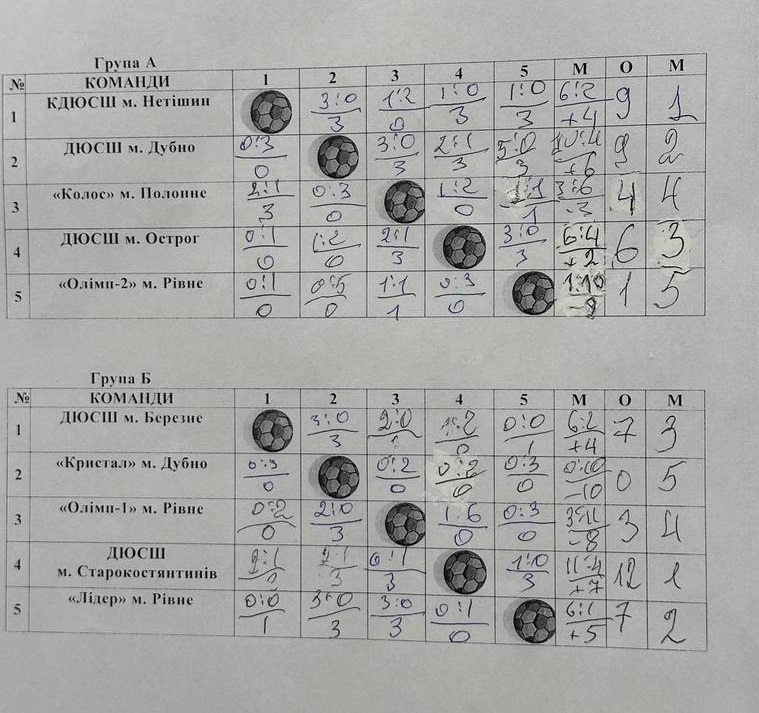 Група А
№ КОМАНДИ 1 2 3 4 5 М О М
1 КДЮСШ м. Нетішин 3:0 1:2 1:0 1:0 6:2 9 1
3 0 3 3 +4
2 ДЮСШ м. Дубно 0:3 3:0 2:1 5:0 10:4 9 2
0 3 3 3 +6
3 «Колос» м. Полонне 2:1 0:3 1:2 1:1 3:6 4 4
3 0 0 1 -3
4 ДЮСШ м. Острог 0:1 1:2 2:1 3:0 6:4 6 3
0 0 3 3 +2
5 «Олімп-2» м. Рівне 0:1 0:5 1:1 0:3 1:10 1 5
0 0 1 0
Група Б
№ КОМАНДИ 1 2 3 4 5 М О М
1 ДЮСШ м. Березне 3:0 2:0 0:0 6:2 7 3
3 0 1 +4
2 «Кристал» м. Дубно 0:3 0:2 0:2 0:3 0:10 0 5
0 0 0 0 -10
3 «Олімп-1» м. Рівне 0:2 2:0 1:6 0:3 3:11 3 4
0 3 0 0 -8
4 ДЮСШ 2:1 2:1 6:1 1:0 11:4 12 1
м. Старокостянтинів 3 3 3 +7
5 «Лідер» м. Рівне 0:0 3:0 3:0 0:1 6:1 7 2
1 3 3 0 +5